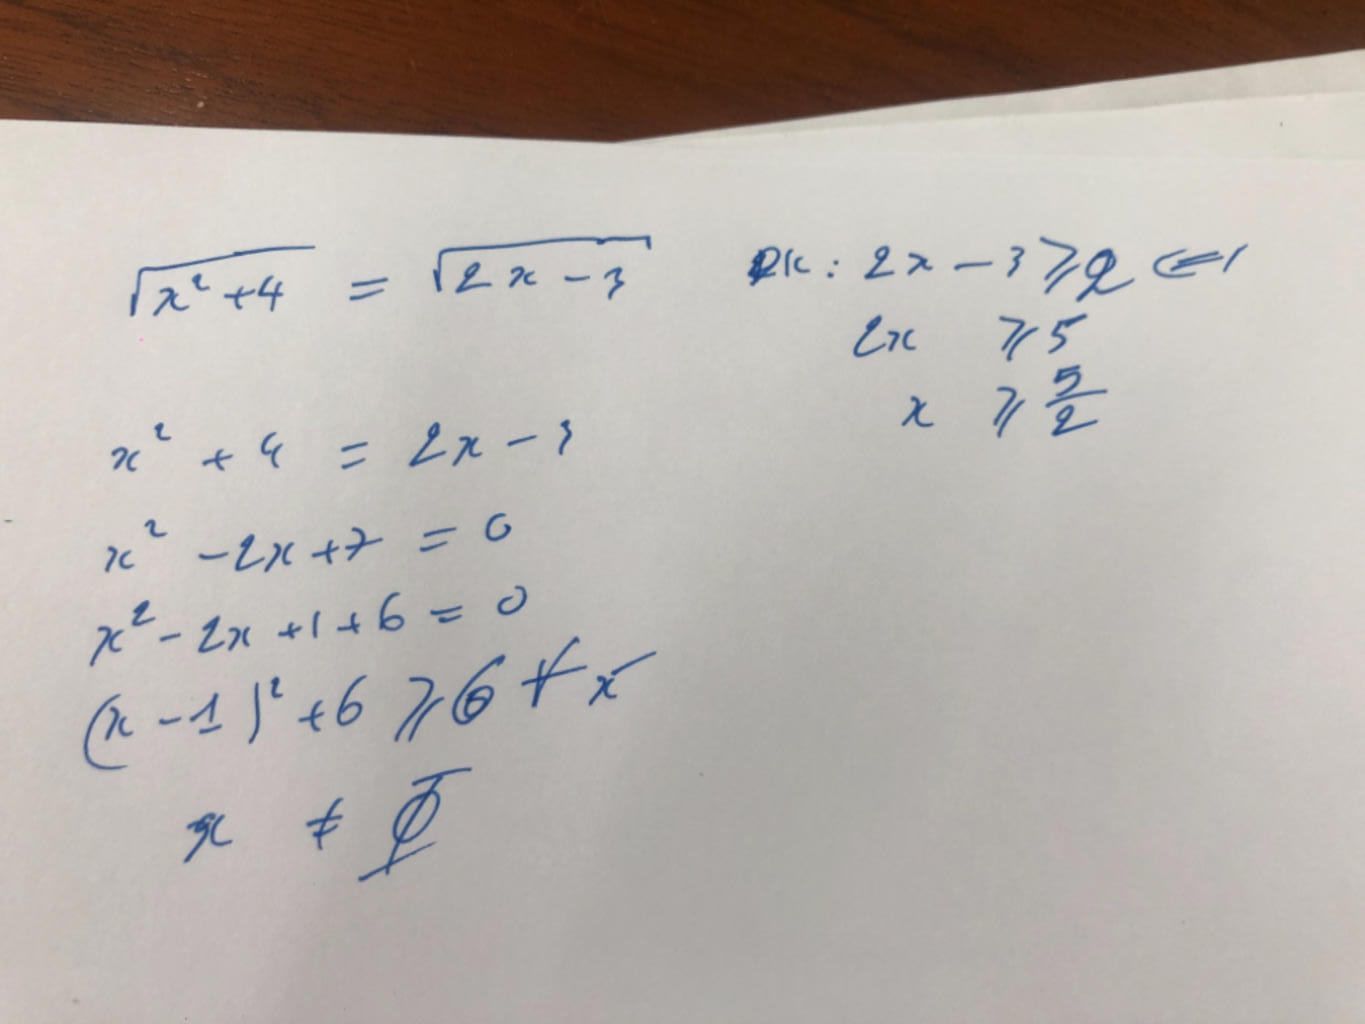 √(x² + 4) = √(2x - 3)
ĐK: 2x - 3 ≥ 2 <=
2x ≥ 5
x ≥ 5/2
x² + 4 = 2x - 3
x² - 2x + 7 = 0
x² - 2x + 1 + 6 = 0
(x - 1)² + 6 ≥ 6 ∀ x
x ≠ ∅